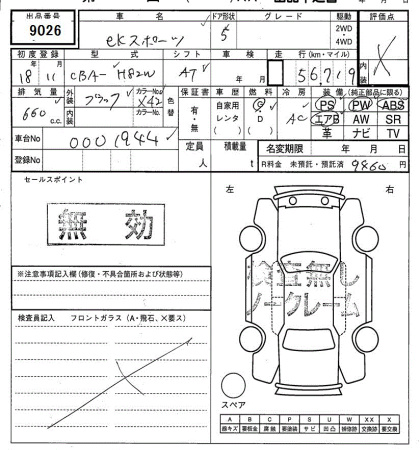 出品番号 車名 ドア形状 グレード 駆動 評価点
9026 eKスポーツ 5 2WD・4WD X
初度登録 型式 シフト 車検 走行(km・マイル)
18年11月 CBA-H82W AT 年 月 56,719 内装
排気量 外装 ブラック カラーNo. X42 色替 保証書 車歴 燃料 冷房 装備(純正部品に限る)
660 c.c. 内装 カラーNo. 有・無 自家用 レンタ G D AC PS PW ABS
エアB AW SR
革 ナビ TV
車台No 0001944 定員 積載量 名変期限 年 月 日
登録No 人 t R料金 未預託・預託済 9860円
セールスポイント 左 右
無効
検査無し
ノークレーム
※注意事項記入欄(修復・不具合箇所および状態等)
検査員記入 フロントガラス(A・飛石、X要ス)
スペア
A B C P S U W XX X
線キズ 要板金 腐蝕 要塗装 サビ 凹凸 補修跡 交換跡 要交換